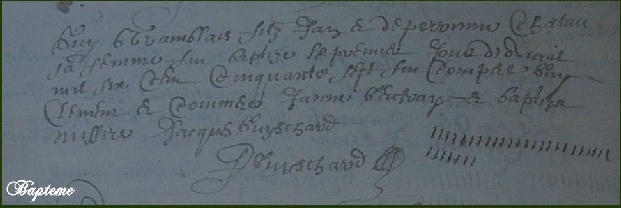 Guy filz Jan & de perronne Chatau
sa femme fut baptize le premier Jour d'Avril
mil six Cent Cinquante sept fut Compere Guy
Clement & Commere Janne & baptize
missire Jacques Guyschard
Guyschard
Bapteme